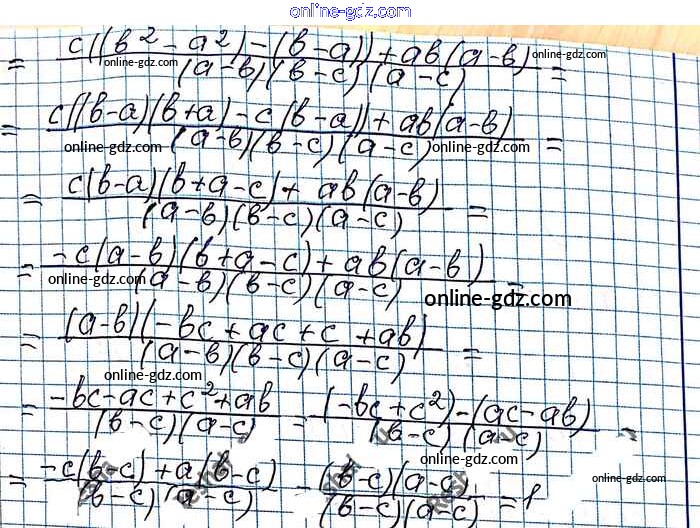 online-gdz.com
= c((b² - a²) - (b - a)) + ab(a - b) / (a - b)(b - c)(a - c) =
online-gdz.com online-gdz.com
= c((b - a)(b + a) - c(b - a)) + ab(a - b) / (a - b)(b - c)(a - c) =
online-gdz.com online-gdz.com
= c(b - a)(b + a - c) + ab(a - b) / (a - b)(b - c)(a - c) =
= -c(a - b)(b + a - c) + ab(a - b) / (a - b)(b - c)(a - c) =
online-gdz.com online-gdz.com
= (a - b)(-bc + ac + c + ab) / (a - b)(b - c)(a - c) =
online-gdz.com
= -bc - ac + c² + ab / (b - c)(a - c) = (-bc + c²) - (ac - ab) / (b - c)(a - c) =
online-gdz.com
= -c(b - c) + a(b - c) / (b - c)(a - c) = (b - c)(a - c) / (b - c)(a - c) = 1
online-gdz.com